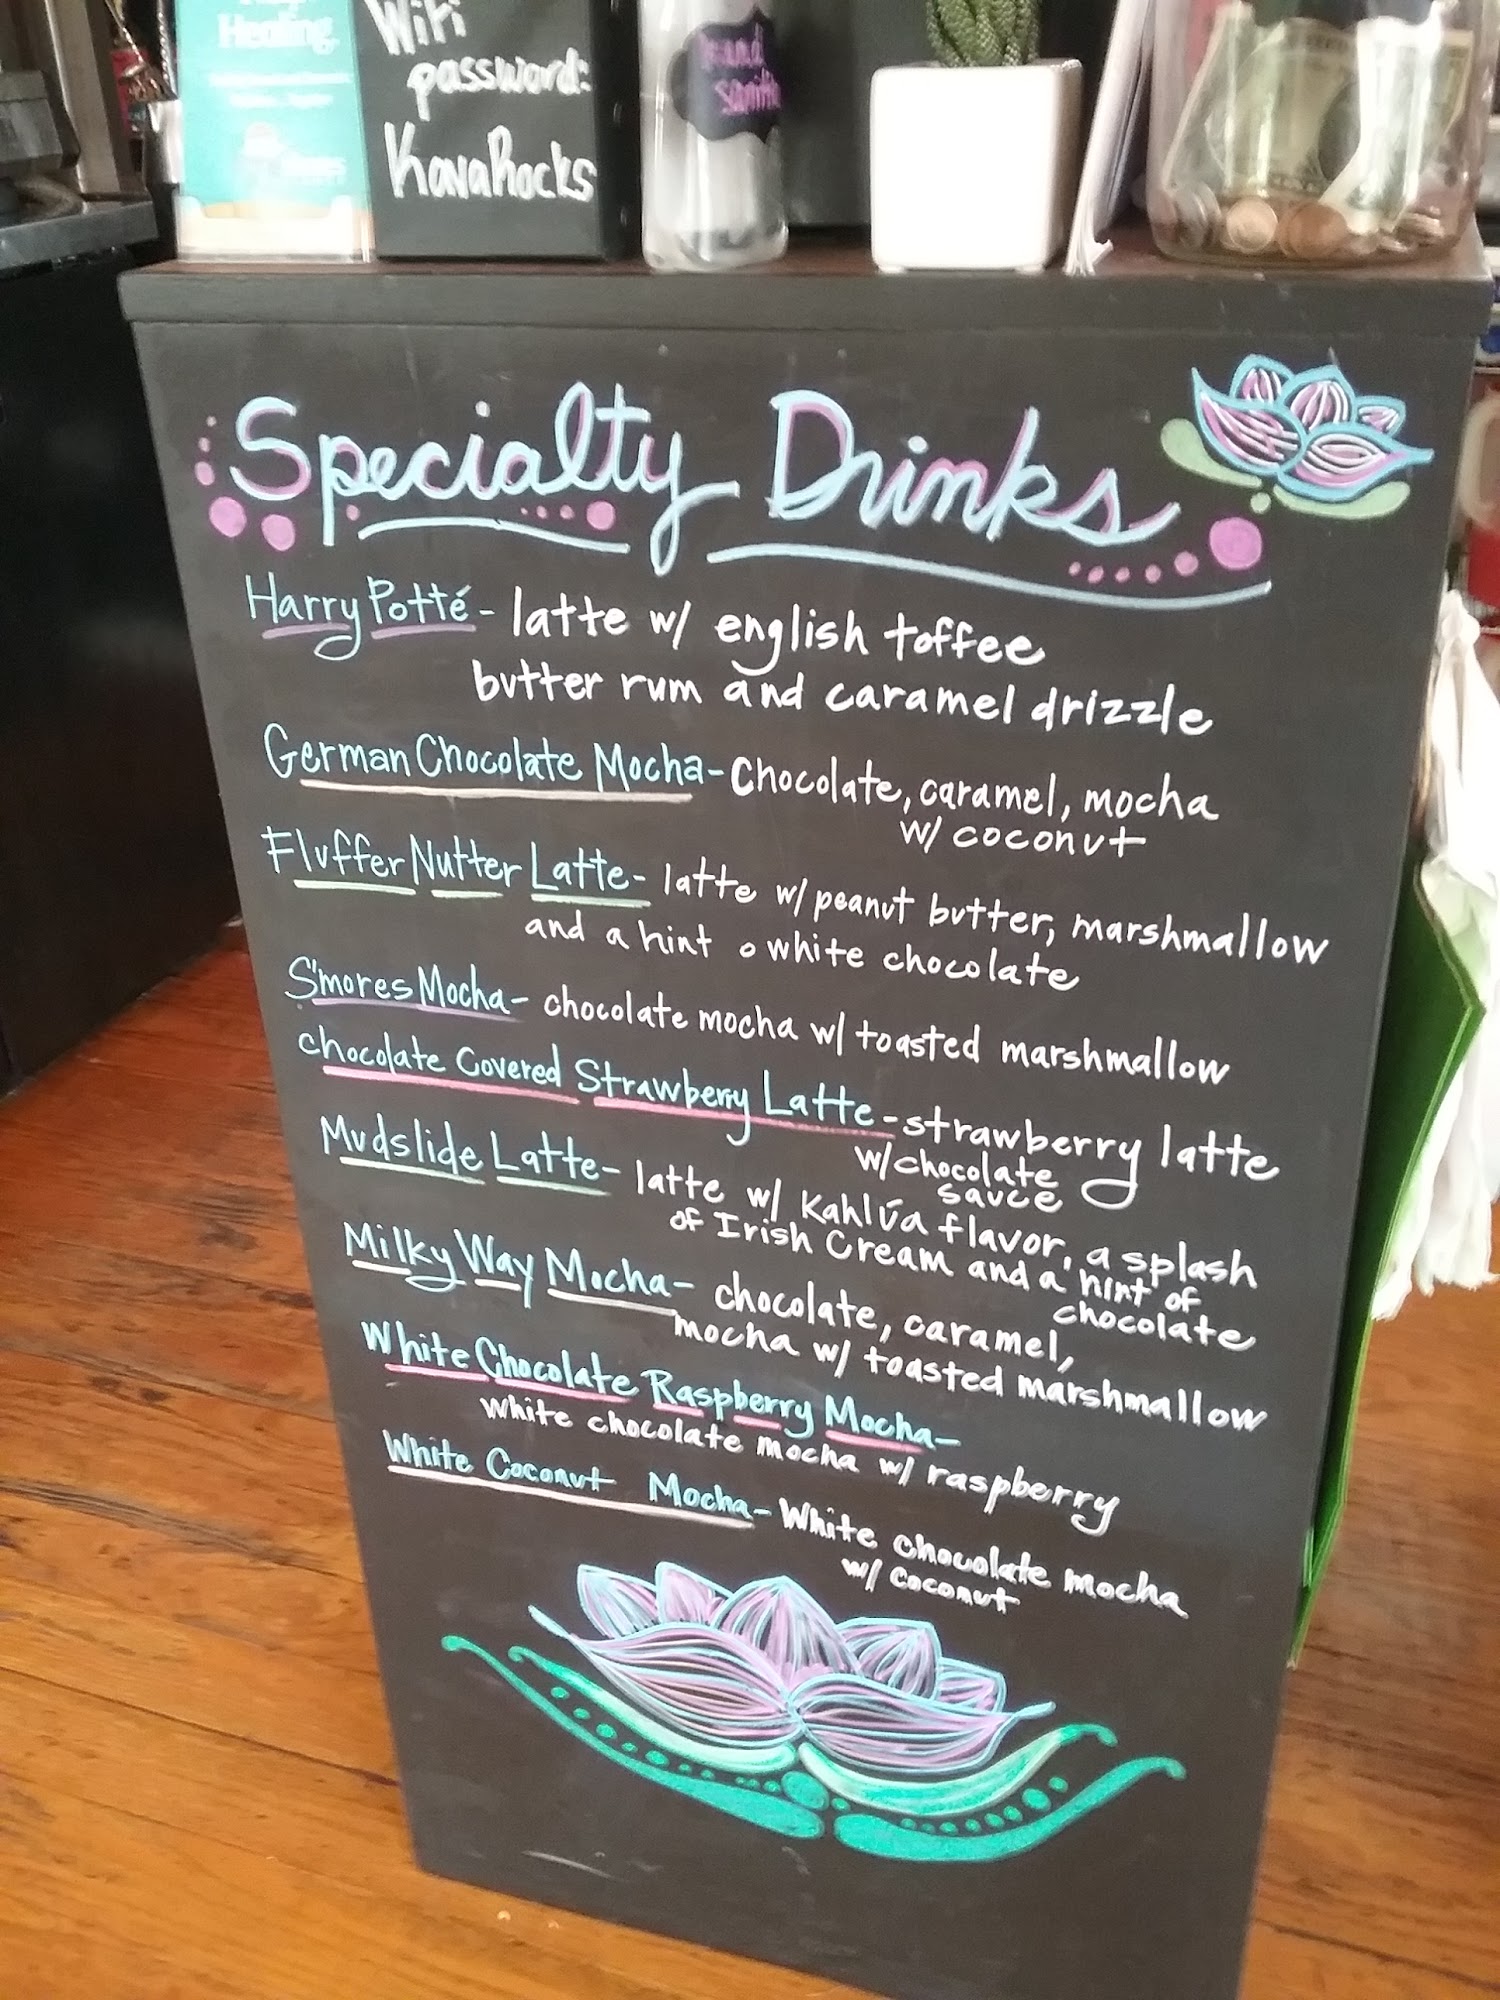 Healing
Wifi
password:
KavaRocks
Specialty Drinks
Harry Potté - latte w/ english toffee
butter rum and caramel drizzle
German Chocolate Mocha - Chocolate, caramel, mocha
w/ coconut
Fluffer Nutter Latte - latte w/ peanut butter, marshmallow
and a hint o white chocolate
S'mores Mocha - chocolate mocha w/ toasted marshmallow
chocolate Covered Strawberry Latte - strawberry latte
w/ chocolate
sauce
Mudslide Latte - latte w/ Kahlúa flavor, a splash
of Irish Cream and a hint of
chocolate
Milky Way Mocha - chocolate, caramel,
mocha w/ toasted marshmallow
White Chocolate Raspberry Mocha -
white chocolate mocha w/ raspberry
White Coconut Mocha - White chocolate mocha
w/ coconut